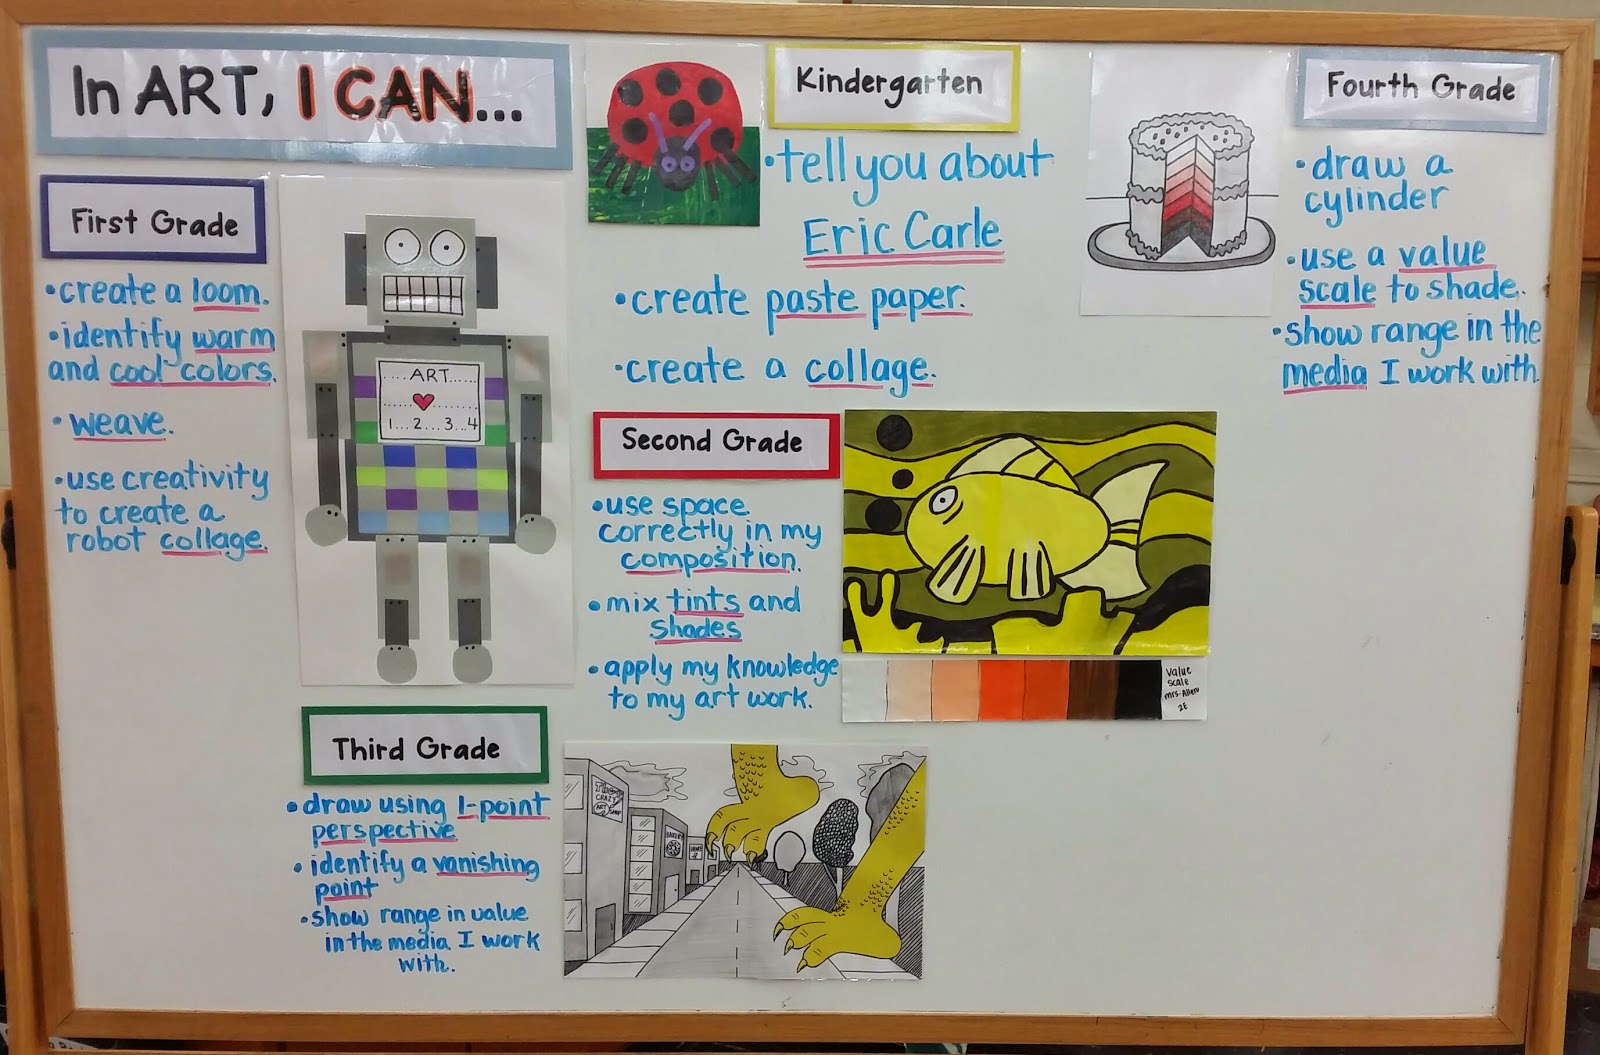 In ART, I CAN...
First Grade
•create a loom.
•identify warm
and cool colors.
•weave.
•use creativity
to create a
robot collage.
....ART......
1...2...3...4
Kindergarten
•tell you about
Eric Carle
•create paste paper.
•create a collage.
Second Grade
•use space
correctly in my
composition.
•mix tints and
shades
•apply my knowledge
to my art work.
Value
Scale
Mrs. Allen
2E
Third Grade
•draw using 1-point
perspective
•identify a vanishing
point
•show range in value
in the media I work
with.
CRAZY
ART
BAKERY
Fourth Grade
•draw a
cylinder
•use a value
scale to shade.
•show range in the
media I work with.